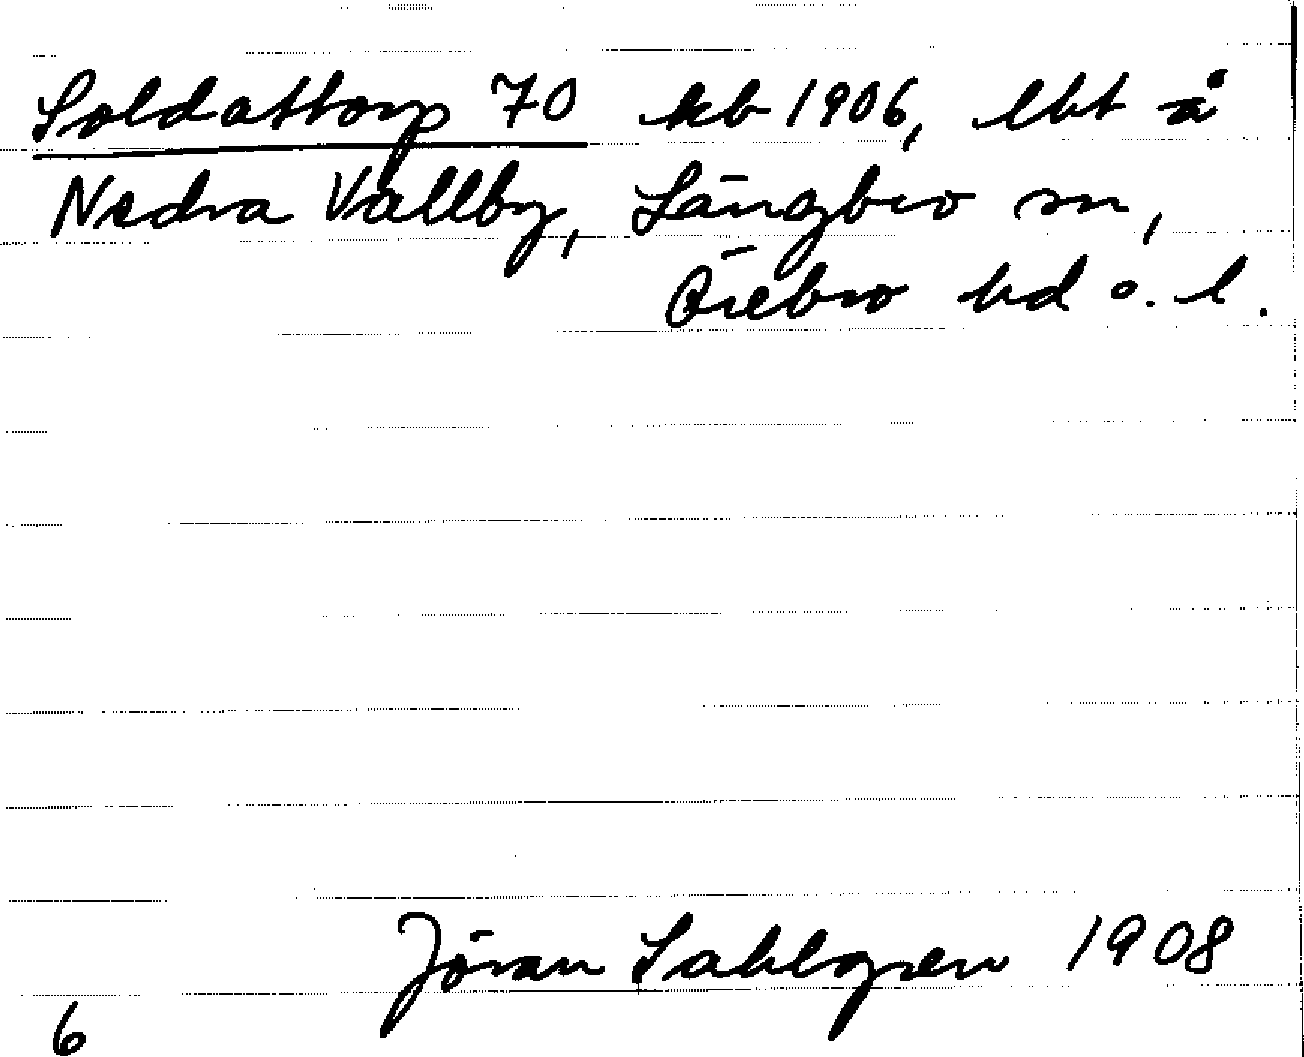 Soldattorp 70 kb 1906, lht å
Nedra Vallby, Längbro sn,
Örebro hd o. l.
Jöran Sahlgren 1908
6